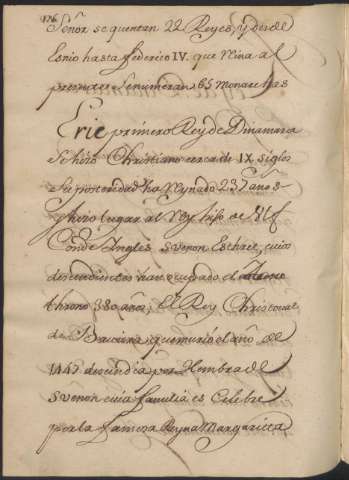 176.
Señor se quentan 22 Reyes, y desde
Esnio hasta Federico IV. que Reina al
presente se numeran 65 monarchas
Eric primero Rey de Dinamarca
Se hizo Christiano cerca de IX. siglos
Su posteridad ha Reynado 237 años
y hizo lugar al Rey hijo de Ulf
Conde Ingles. Svenon Esthrit, cuios
descendientes han ocupado el
throno 380 años; El Rey Christoval
de Baviera que murió el año de
1447 descendia por Hembra de
Svenon cuia familia es Celebre
por la famosa Reyna Margarita